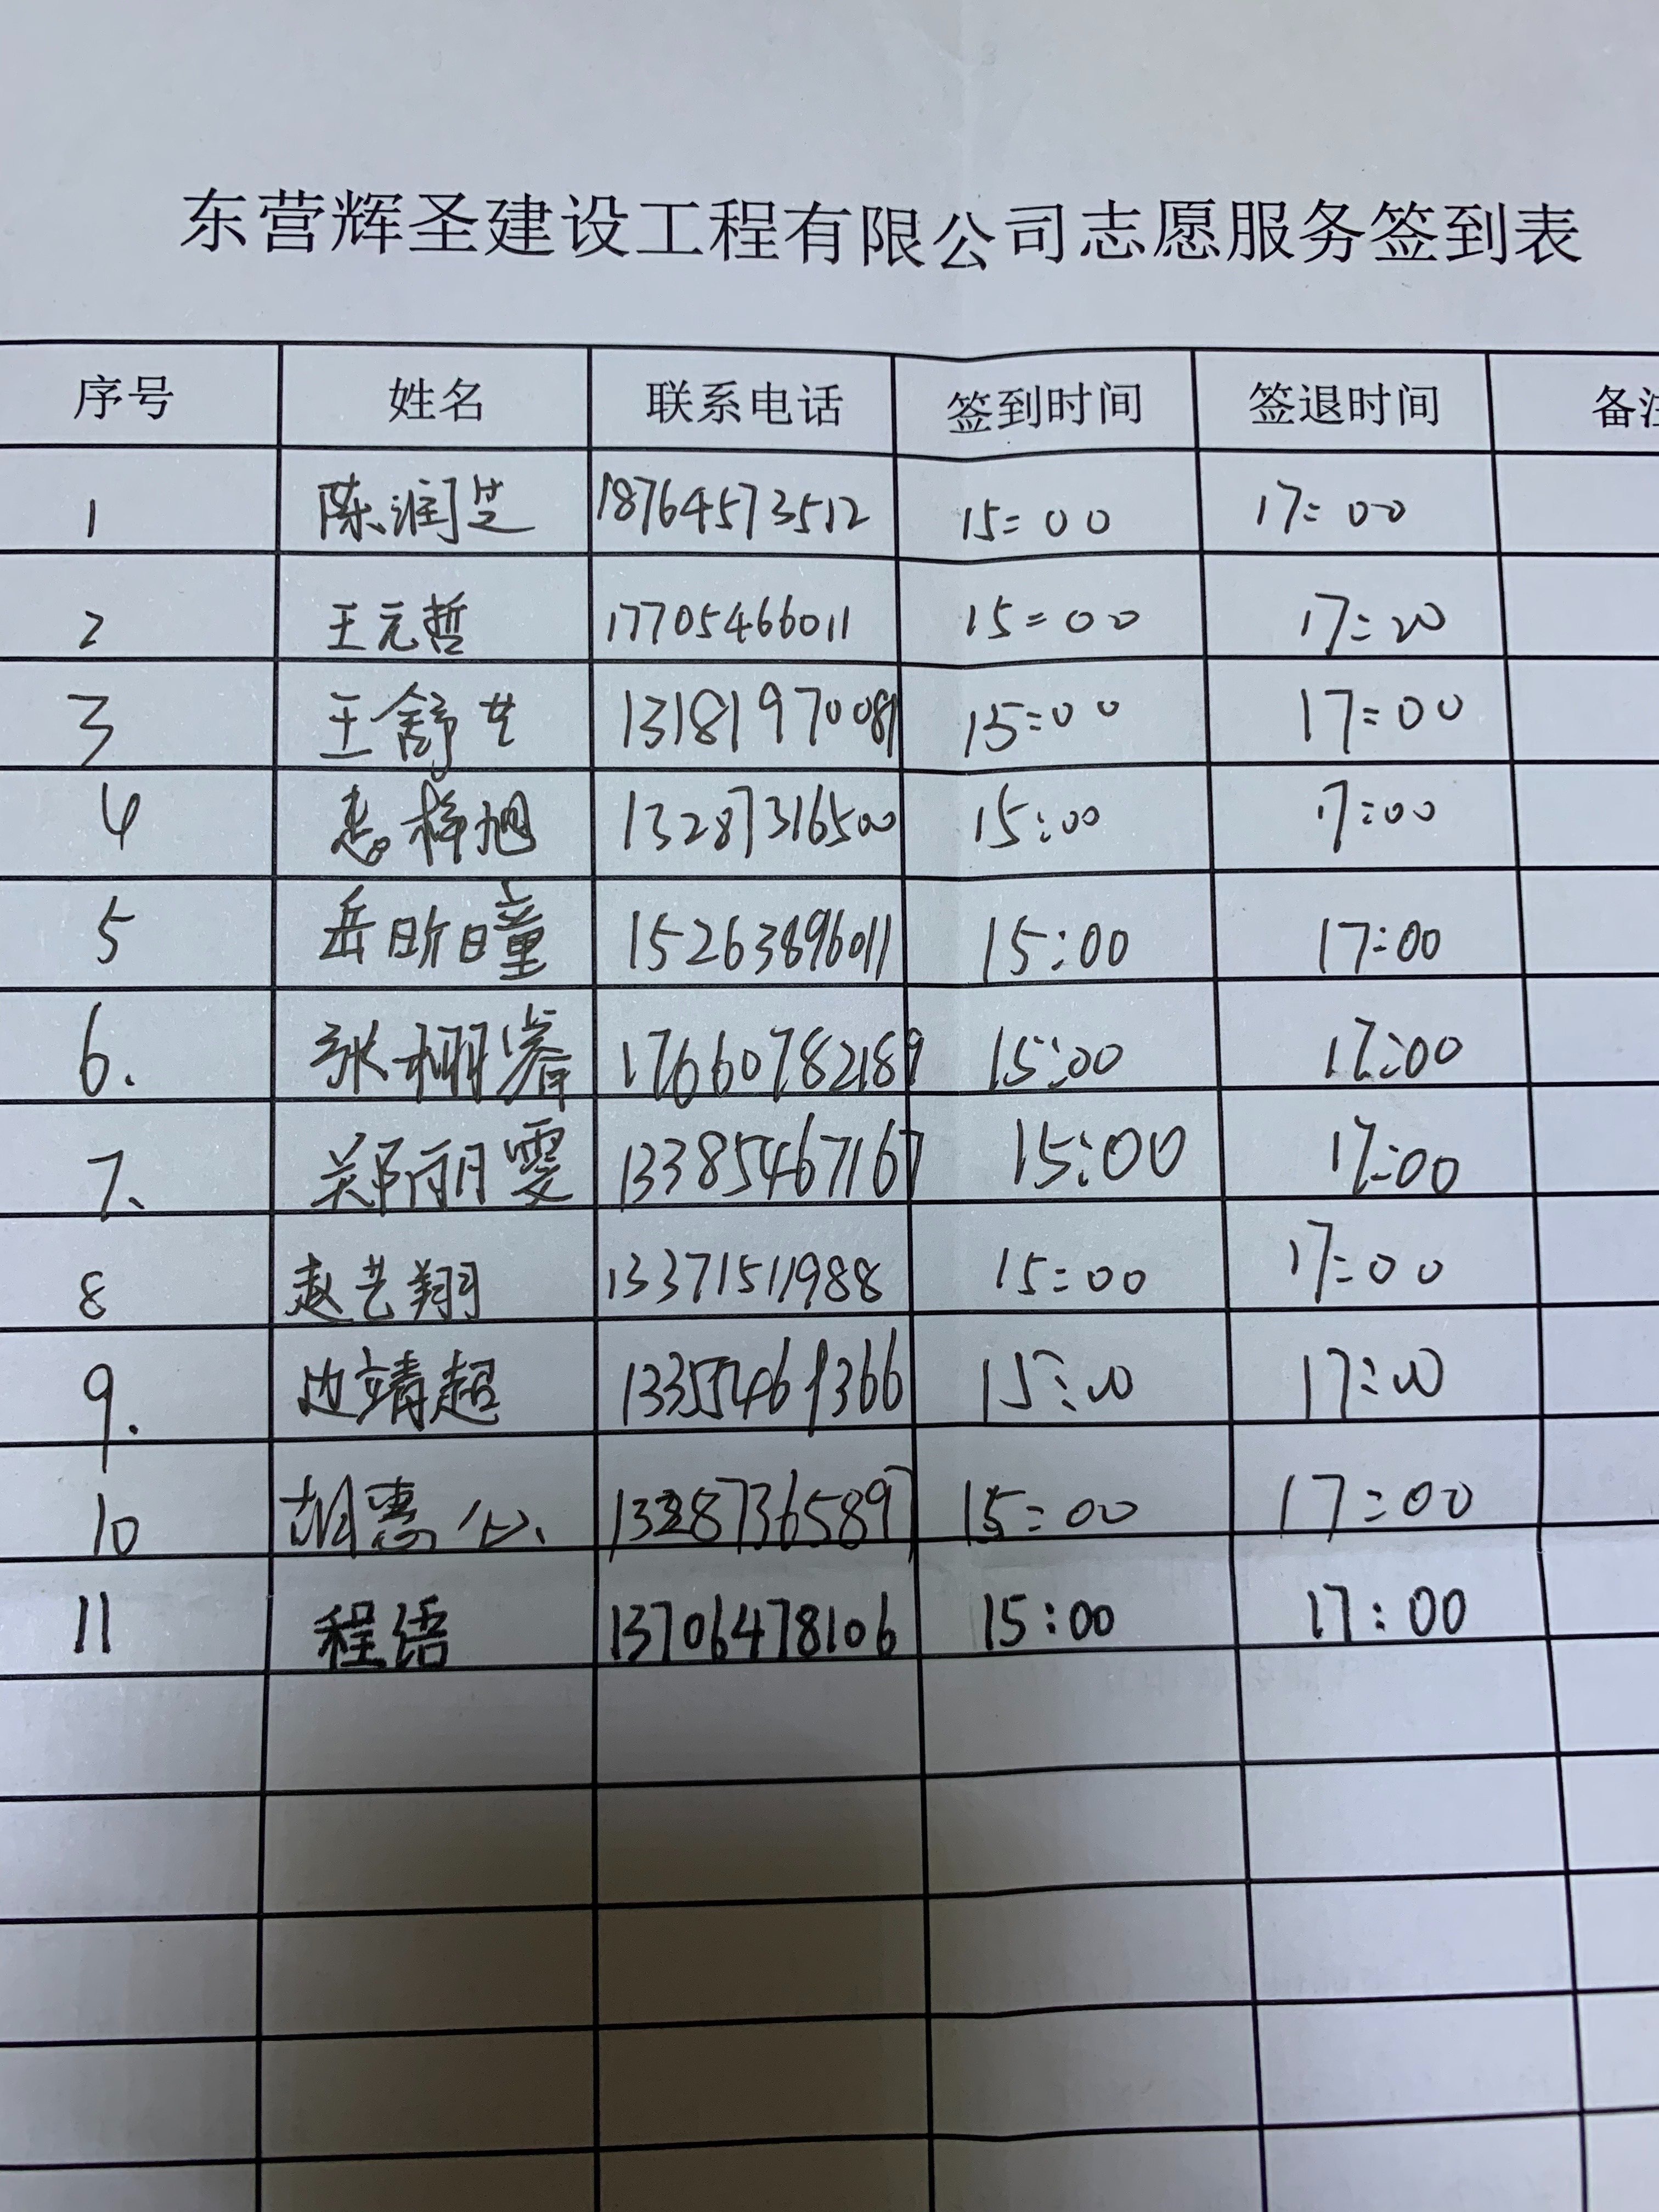 东营辉圣建设工程有限公司志愿服务签到表
序号 姓名 联系电话 签到时间 签退时间 备注
1 陈润芝 18764573512 15:00 17:00
2 王元哲 17705466011 15:00 17:00
3 王舒 13181970081 15:00 17:00
4 梓旭 13287316500 15:00 17:00
5 岳昕曈 15263896011 15:00 17:00
6. 张栩睿 17660782189 15:00 17:00
7、 郑丽雯 13385467167 15:00 17:00
8 赵艺翔 13371511988 15:00 17:00
9. 边靖超 15:00 17:00
10 胡惠 15:00 17:00
11 程语 13706478106 15:00 17:00